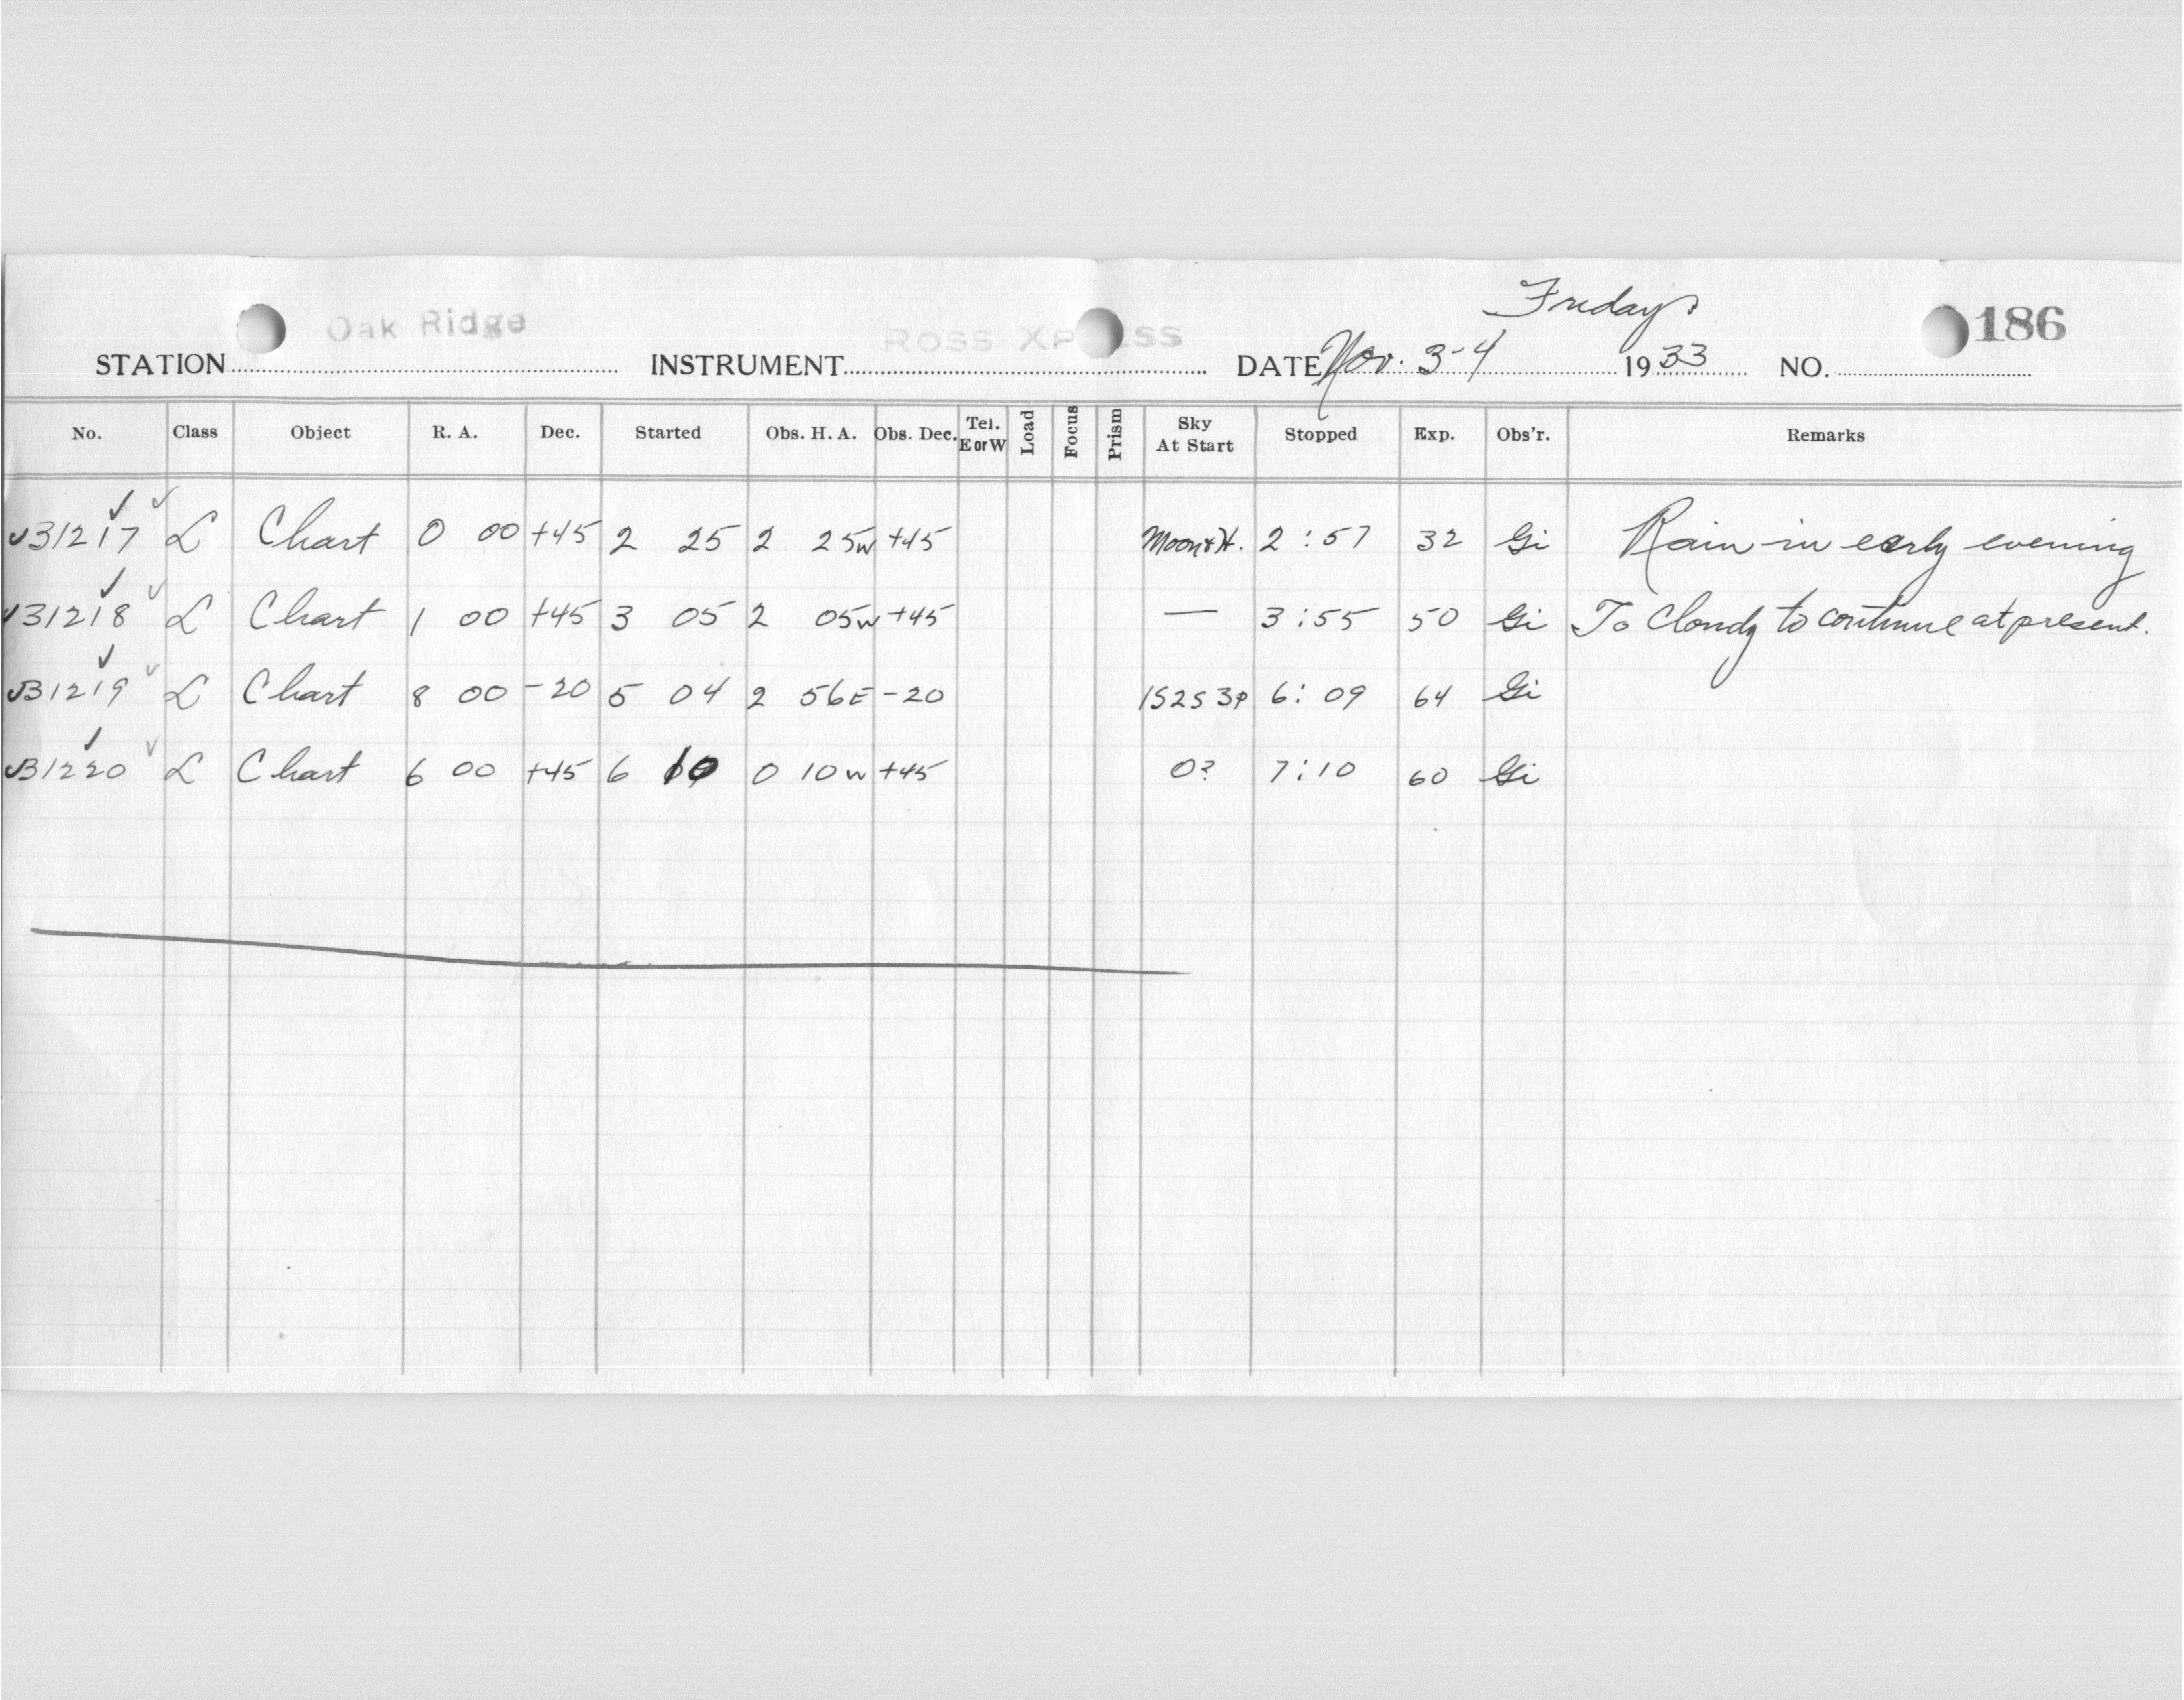 Friday
Oak Ridge ROSS XP ss 186
STATION INSTRUMENT DATE Nov. 3-4 1933 NO.
No. Class Object R. A. Dec. Started Obs. H. A. Obs. Dec. Tel. E or W Load Focus Prism Sky At Start Stopped Exp. Obs'r. Remarks
31217 L Chart 0 00 +45 2 25 2 25w +45 Moon+H. 2:57 32 Gi Rain in early evening
31218 L Chart 1 00 +45 3 05 2 05w +45 — 3:55 50 Gi To Cloudy to continue at present.
31219 L Chart 8 00 -20 5 04 2 56E -20 1S2S3P 6:09 64 Gi
31220 L Chart 6 00 +45 6 10 0 10w +45 0? 7:10 60 Gi